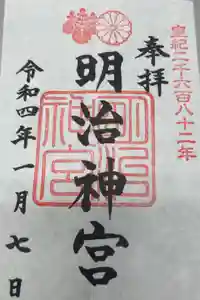 皇紀二千六百八十二年
奉拝
明治神宮
明治神宮
令和四年一月七日